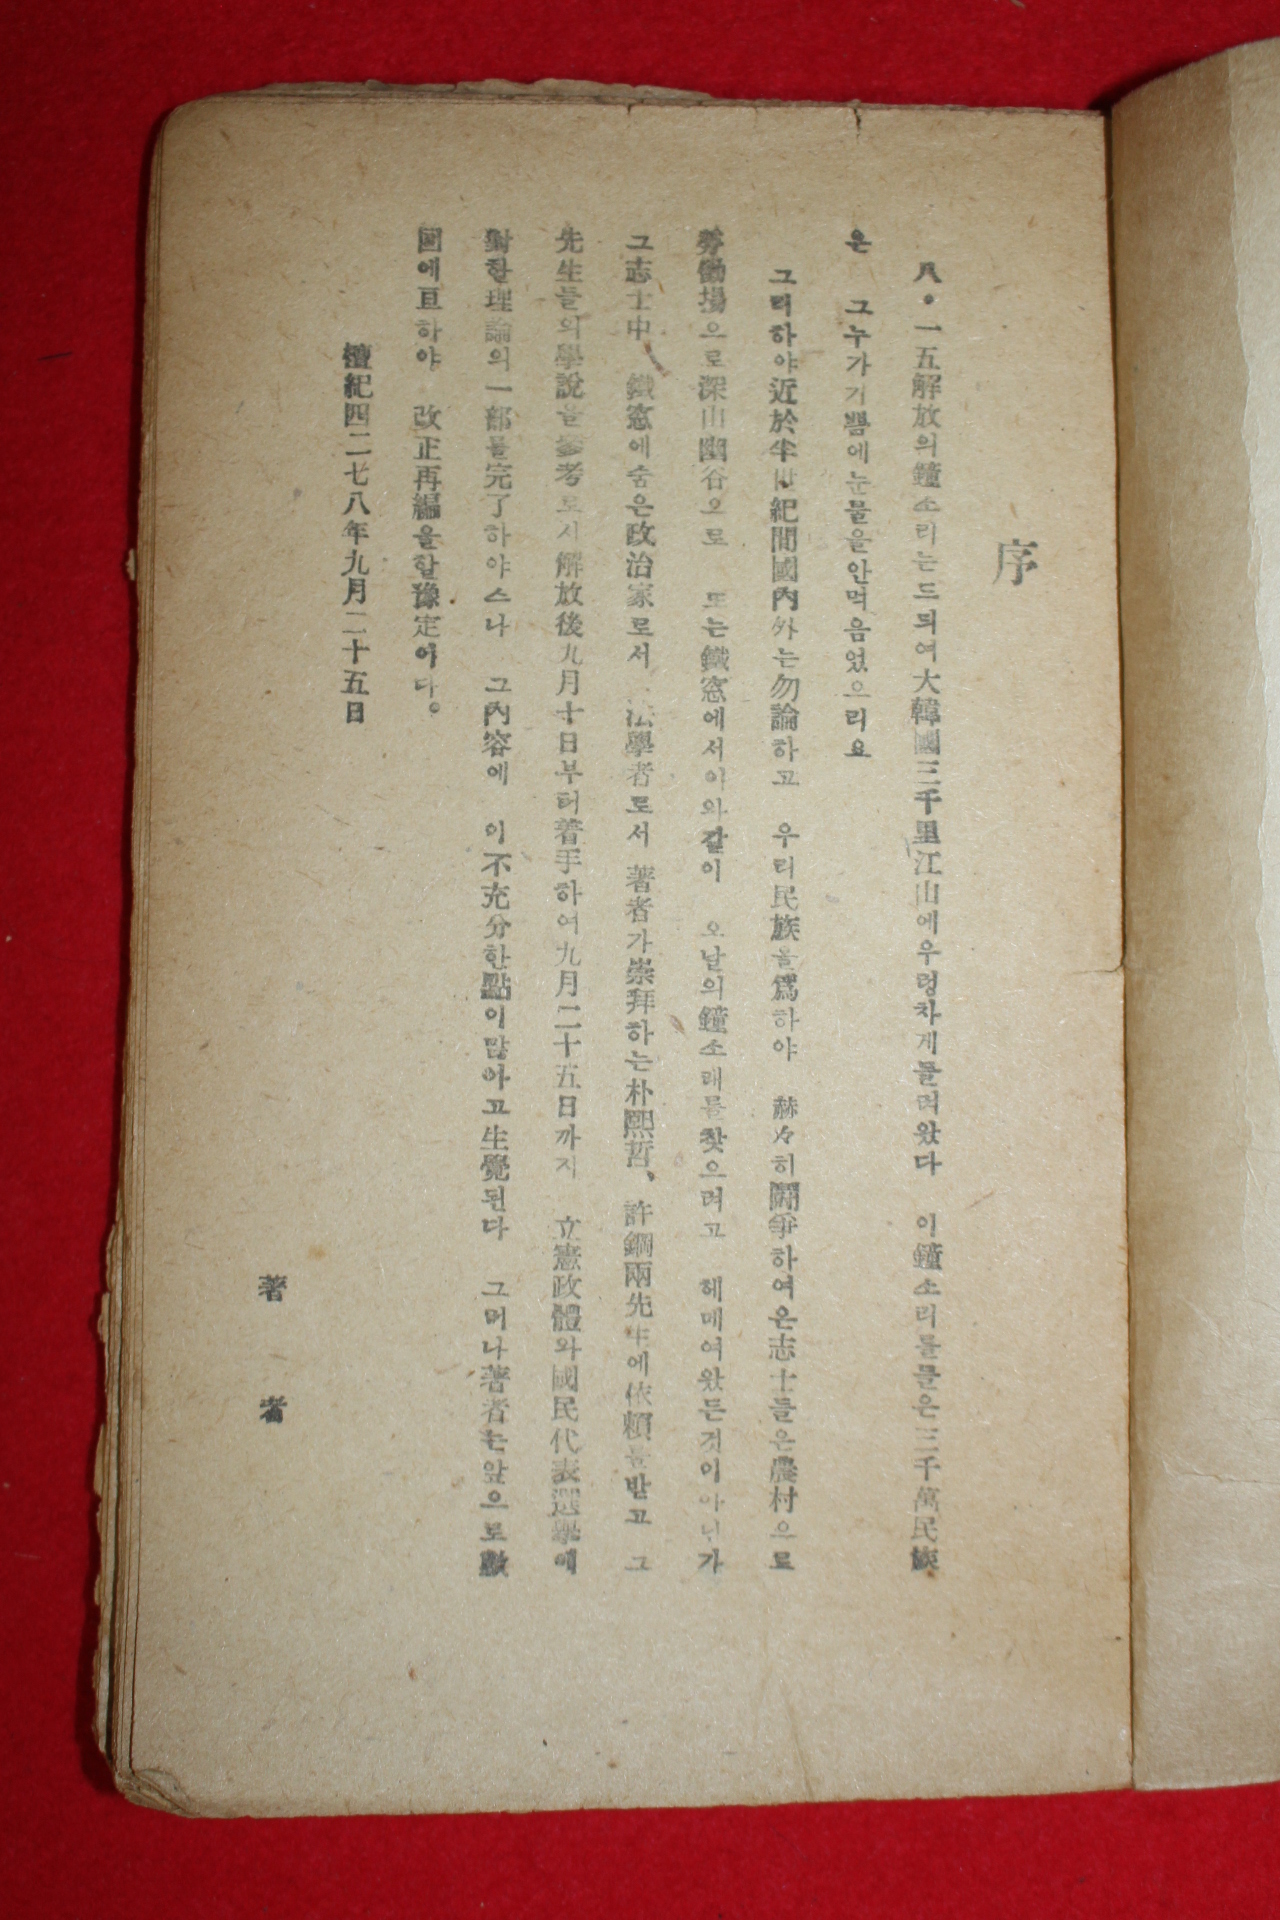 序
八•一五解放의鐘소리는드듸여大韓國三千里江山에우렁차게들려왔다 이鐘소리를들은三千萬民族
은 그누가기쁨에눈물을안먹음었으리요
그리하야近於半世紀間國內外는勿論하고 우리民族을爲하야 赫々히鬪爭하여온志士들은農村으로
勞働場으로深山幽谷으로 또는鐵窓에서이와같이 오날의鐘소래를찾으려고 헤매여왔든것이아닌가
그志士中 鐵窓에숨은政治家로서 法學者로서 著者가崇拜하는朴熙哲、許鋼兩先生에依賴를받고 그
先生들의學說을參考로서解放後九月十日부터着手하여九月二十五日까지 立憲政體와國民代表選擧에
對할理論의一部를完了하야스나 그內容에 이不充分한點이많아고生覺된다 그러나著者는앞으로數
回에亘하야 改正再編을할豫定이다。
檀紀四二七八年九月二十五日
著者